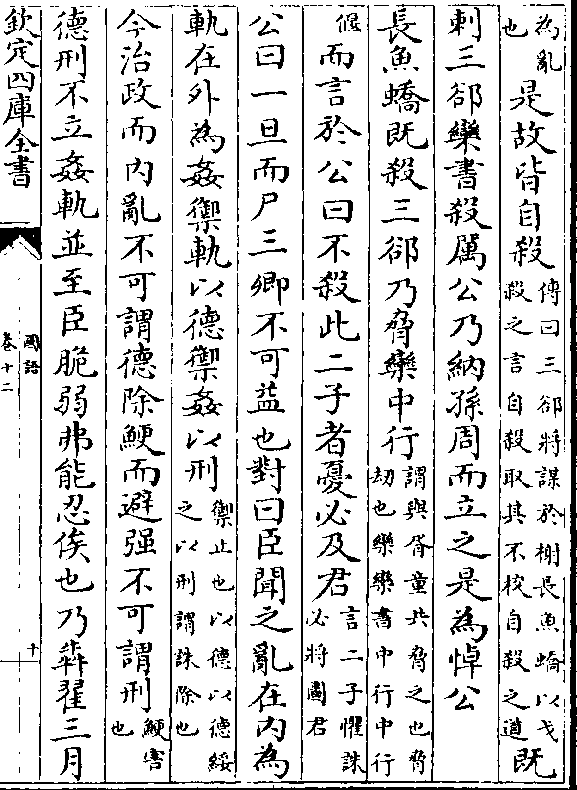 為亂也是故皆自殺傳曰三郤將謀於榭長魚蟜以戈殺之言自殺取其不校自殺之道既
刺三郤欒書殺厲公乃納孫周而立之是為悼公
長魚蟜既殺三郤乃脅欒中行謂與胥童共脅之也脅劫也欒欒書中行中行
偃而言於公曰不殺此二子者憂必及君言二子懼誅必將圖君
公曰一旦而尸三卿不可益也對曰臣聞之亂在内為
軌在外為姦禦軌以德禦姦以刑禦止也以德以德綏之以刑謂誅除也
今治政而内亂不可謂德除鯁而避强不可謂刑鯁害也
德刑不立姦軌並至臣脆弱弗能忍俟也乃奔翟三月
欽定四庫全書
國語
卷十二
十